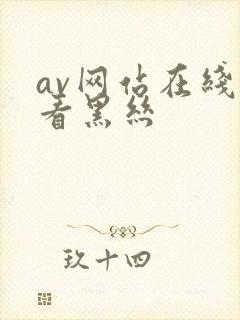 av网站在线
看黑丝
玖十四